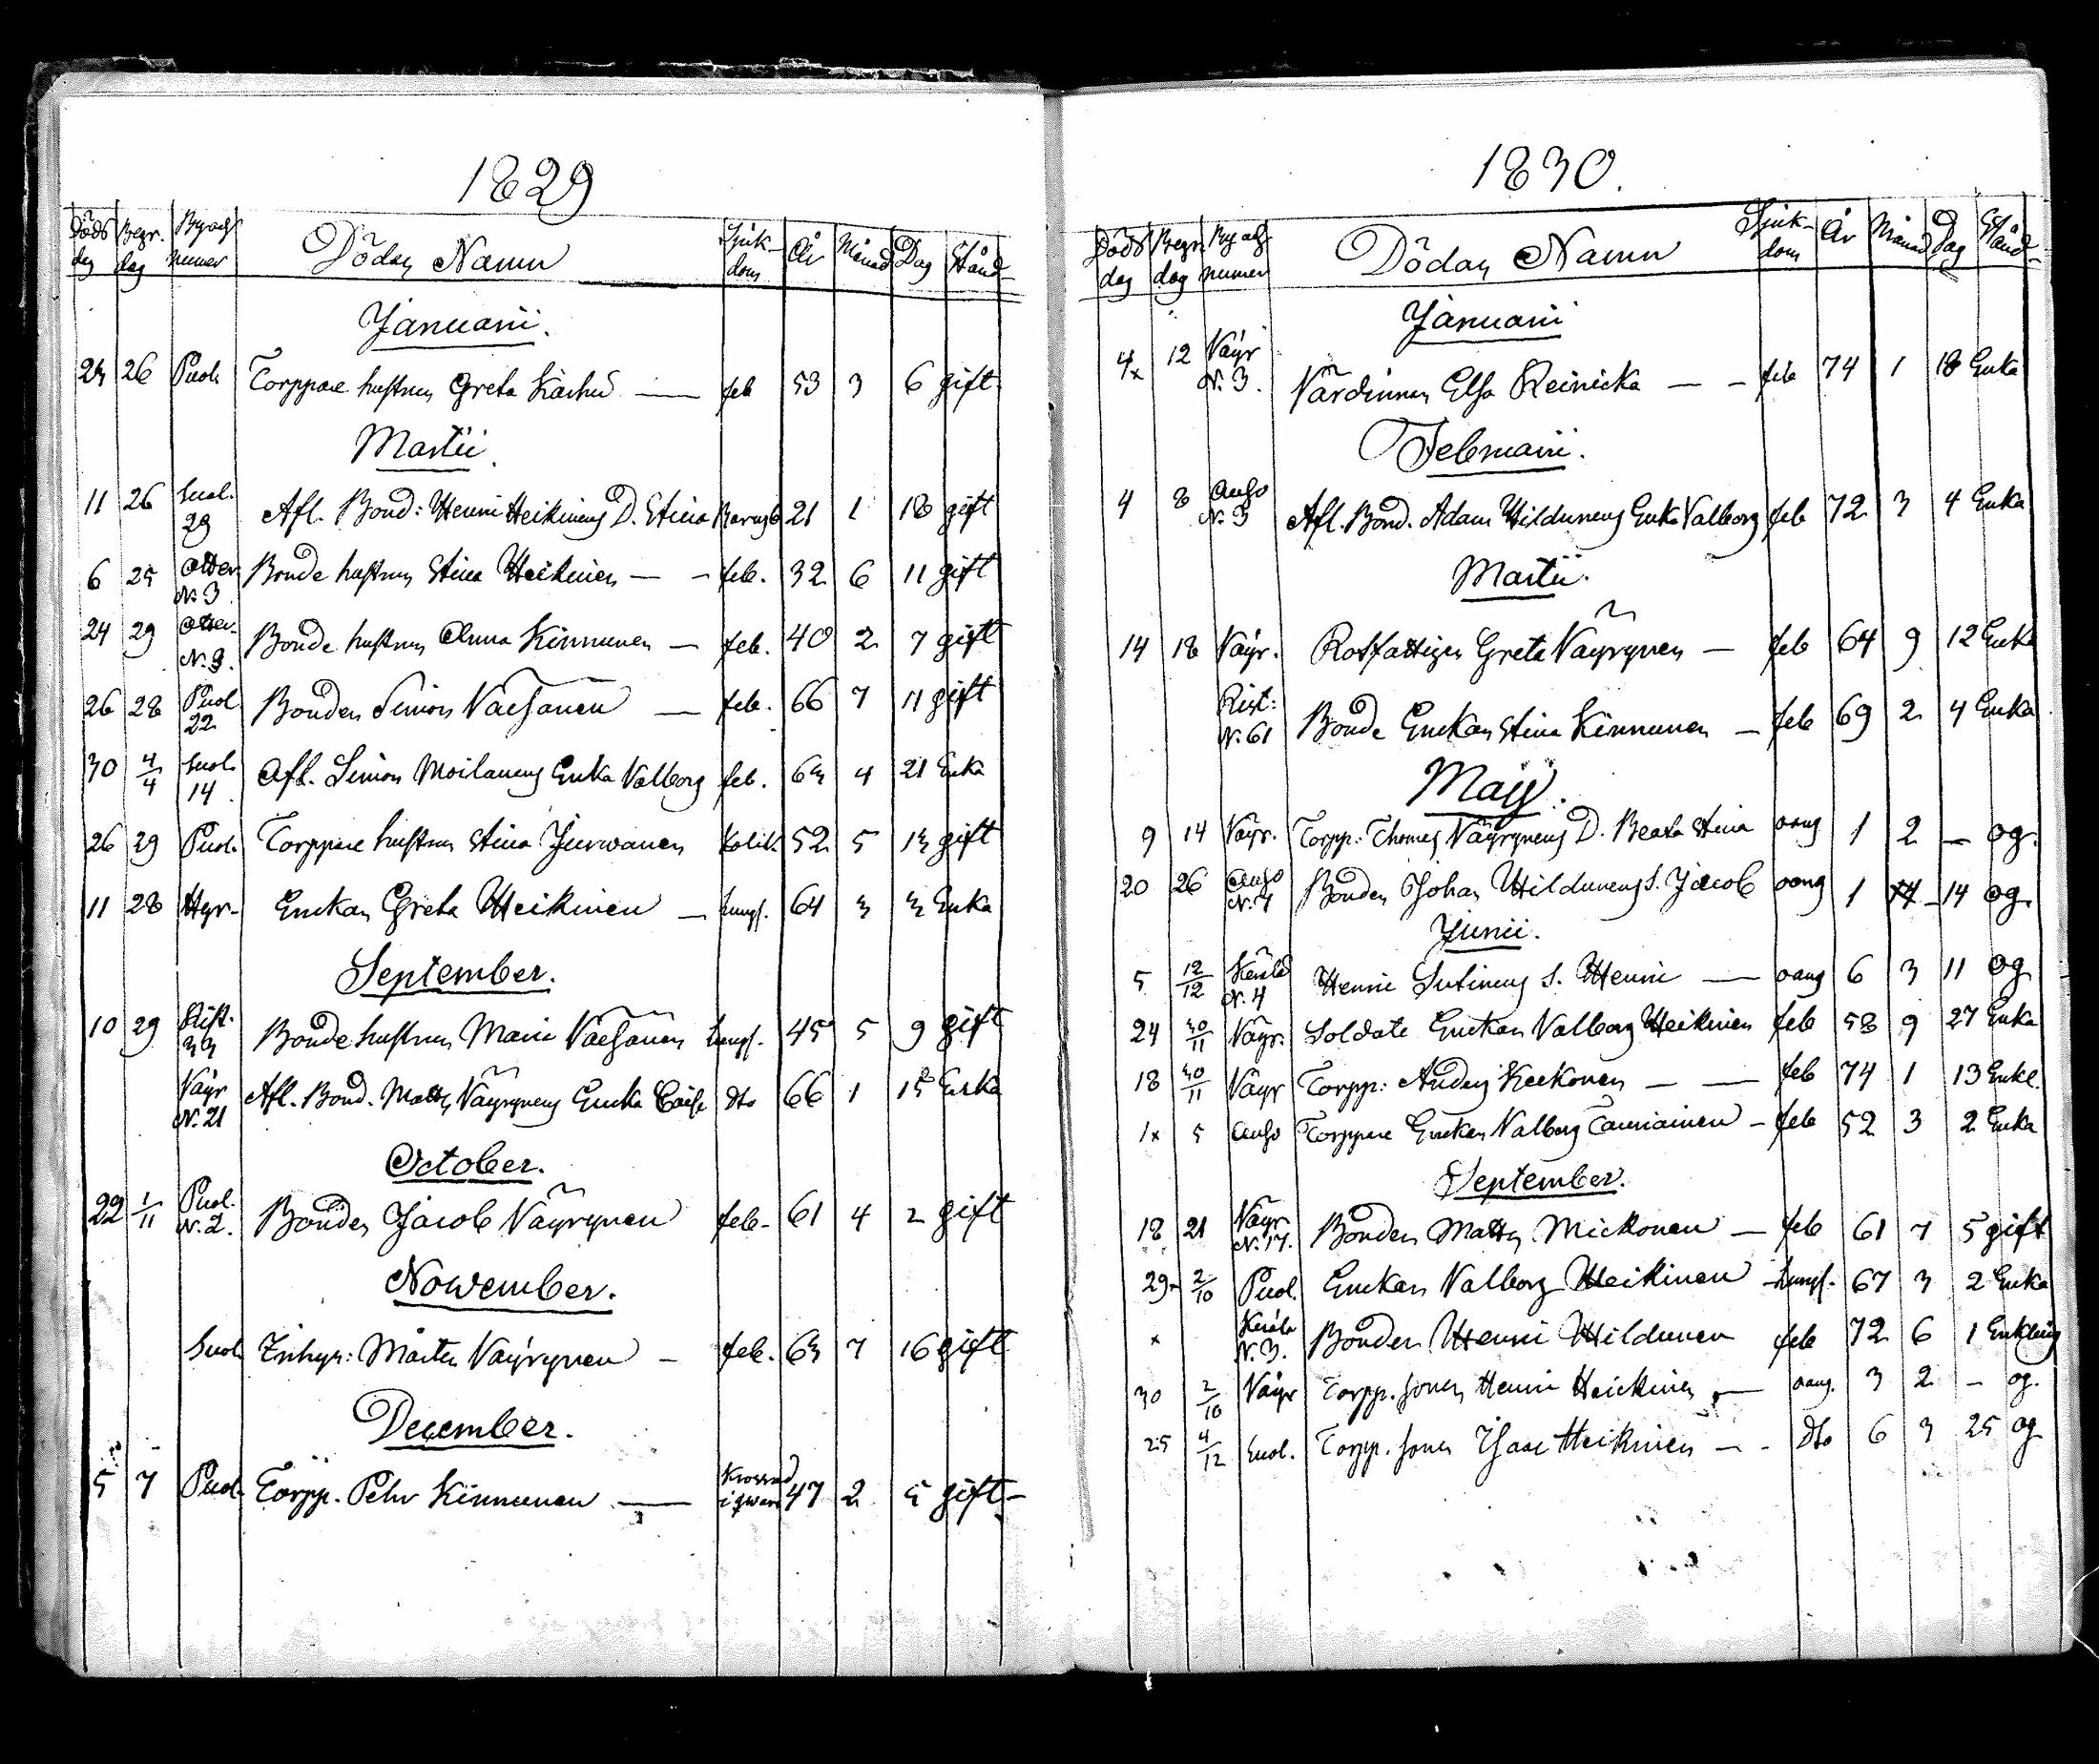 1829
Döds dag Begr. dag By och numer Dödas Namn Sjukdom År Månad Dag Stånd
Januarii.
23 26 Puol. Torppare hustrun Greta Karhu — feb 53 3 6 gift
Martii.
11 26 Suol. 29 Afl. Bond: Henri Heikinens D. Stina Barnsb 21 1 18 gift
6 25 Otter N. 3 Bonde hustrun Stina Heikinen — — feb. 32 6 11 gift
24 29 Otter N. 9. Bonde hustrun Anna Kinnunen — feb. 40 2 7 gift
26 28 Puol 22 Bonden Simon Väisänen — feb. 66 7 11 gift
30 4/4 Suol. 14. Afl. Simon Moilanens Enka Valborg feb. 63 4 21 Enka
26 29 Puol. Torppare hustrun Stina Jurwanen Kolik 52 5 13 gift
11 28 Hyr. Enckan Greta Heikinen — Lungs. 64 3 3 Enka
September.
10 29 Rist. 33 Bonde hustrun Maria Väisänen Lungs. 45 5 9 gift
Väyr N. 21 Afl. Bond. Matts Väyrynens Encka Caisa dto 66 1 15 Enka
October.
22 1/11 Puol. N. 2. Bonden Jacob Väyrynen feb. 61 4 2 gift
November.
Suol Inhys: Mårten Väyrynen — feb. 63 7 16 gift
December.
5 7 Puol. Torpp. Pehr Kinnunen — Krossad i qwarn 47 2 5 gift
1830.
Döds dag Begr. dag By och numer Dödas Namn Sjukdom År Månad Dag Stånd
Januarii
4x 12 Väyr N. 3. Värdinnan Elsa Reinicka — — feb 74 1 18 Enka
Februarii.
4 8 N. 3 Afl. Bond. Adam Hildunens Enka Valborg feb 72 3 4 Enka
Martii.
14 18 Väyr. Rotfattigen Greta Väyrynen — feb 64 9 12 Enka
Rist: N. 61 Bonde Enckan Stina Kinnunen — feb 69 2 4 Enka
Maji.
9 14 Väyr. Torpp: Thomas Väyrynens D. Beata Stina oang 1 2 — og.
20 26 N. 7 Bonden Johan Hildunens S. Jacob oang 1 — 14 og.
Junii.
5 12/12 N. 4 Henric Sutinens S. Henric — oang 6 3 11 og
24 30/11 Väyr. Soldate Enckan Valborg Heikinen feb 58 9 27 Enka
18 30/11 Väyr Torpp: Anders Keckonen — — feb 74 1 13 Enkl.
1x 5 Torppare Enckan Valborg Tauriainen — feb 52 3 2 Enka
September.
18 21 Väyr. N. 17. Bonden Matts Mickonen — feb 61 7 5 gift
29 2/10 Puol. Enckan Valborg Heikinen Lungs. 67 3 2 Enka
x N. 3. Bonden Henric Hildunen feb 72 6 1 Enkling
30 2/10 Väyr Torpp. sonen Henric Heickinen — oang. 3 2 — og.
25 4/12 Suol. Torpp. sonen Isaac Heikinen — — dto 6 3 25 og